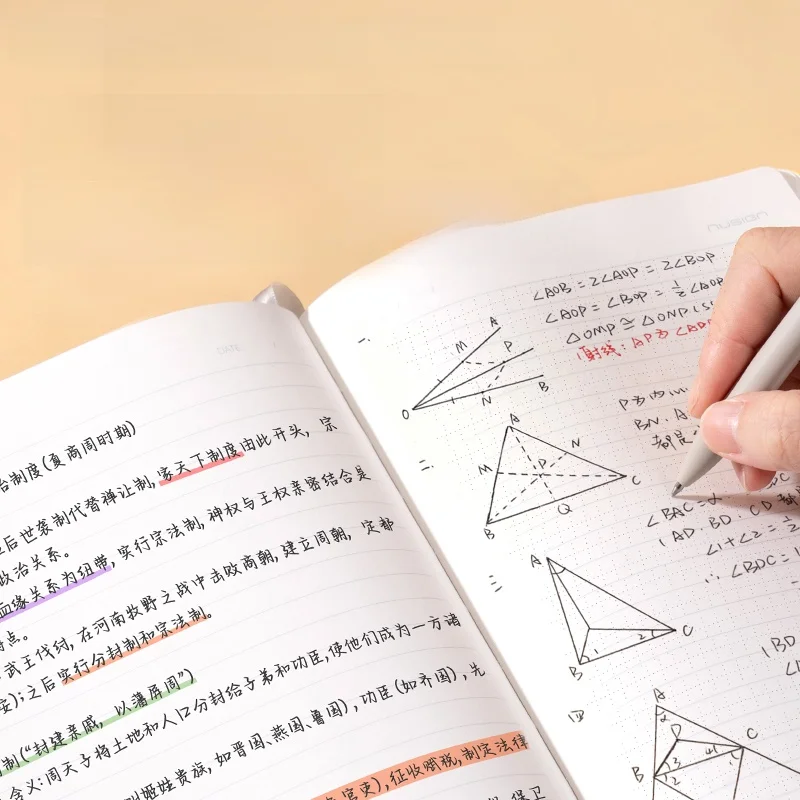 DATE
治制度(夏商周时期)
后世袭制代替禅让制,家天下制度由此开头,宗
政治关系。
血缘关系为纽带,实行宗法制,神权与王权亲密结合是
特点。
武王伐纣,在河南牧野之战中击败商朝,建立周朝,定都
安);之后实行分封制和宗法制。
制("封建亲戚,以藩屏周")
含义:周天子将土地和人口分封给子弟和功臣,使他们成为一方诸
姬姓贵族,如晋国、燕国、鲁国),功臣(如齐国),先
官吏),征收赋税,制定法律
保卫
nusign
一、
A
M
P
O
N
B
∠AOB = 2∠AOP = 2∠BOP
∠AOP = ∠BOP = 1/2 ∠AOB
△OMP ≅ △ONP
射线:AP为
二、
A
N
M
P
C
B
Q
P为
BN.A
都是
三、
A
B
1
2
C
∠BAC=α
(AD.BD.CD
∠1+∠2=1/2
∴∠BDC=
四
A
α
D
C
4
3
1
B
2